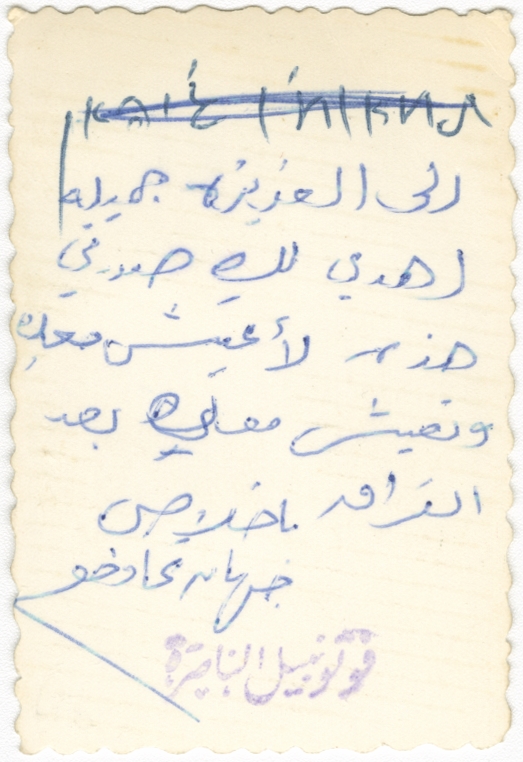 الى العزيزه جميله
اهدي لك صورتي
هذه لأعيش معك
وتعيش معي بعد
الفراق باخلاص
جهاد
فوتو نبيل الناصرة